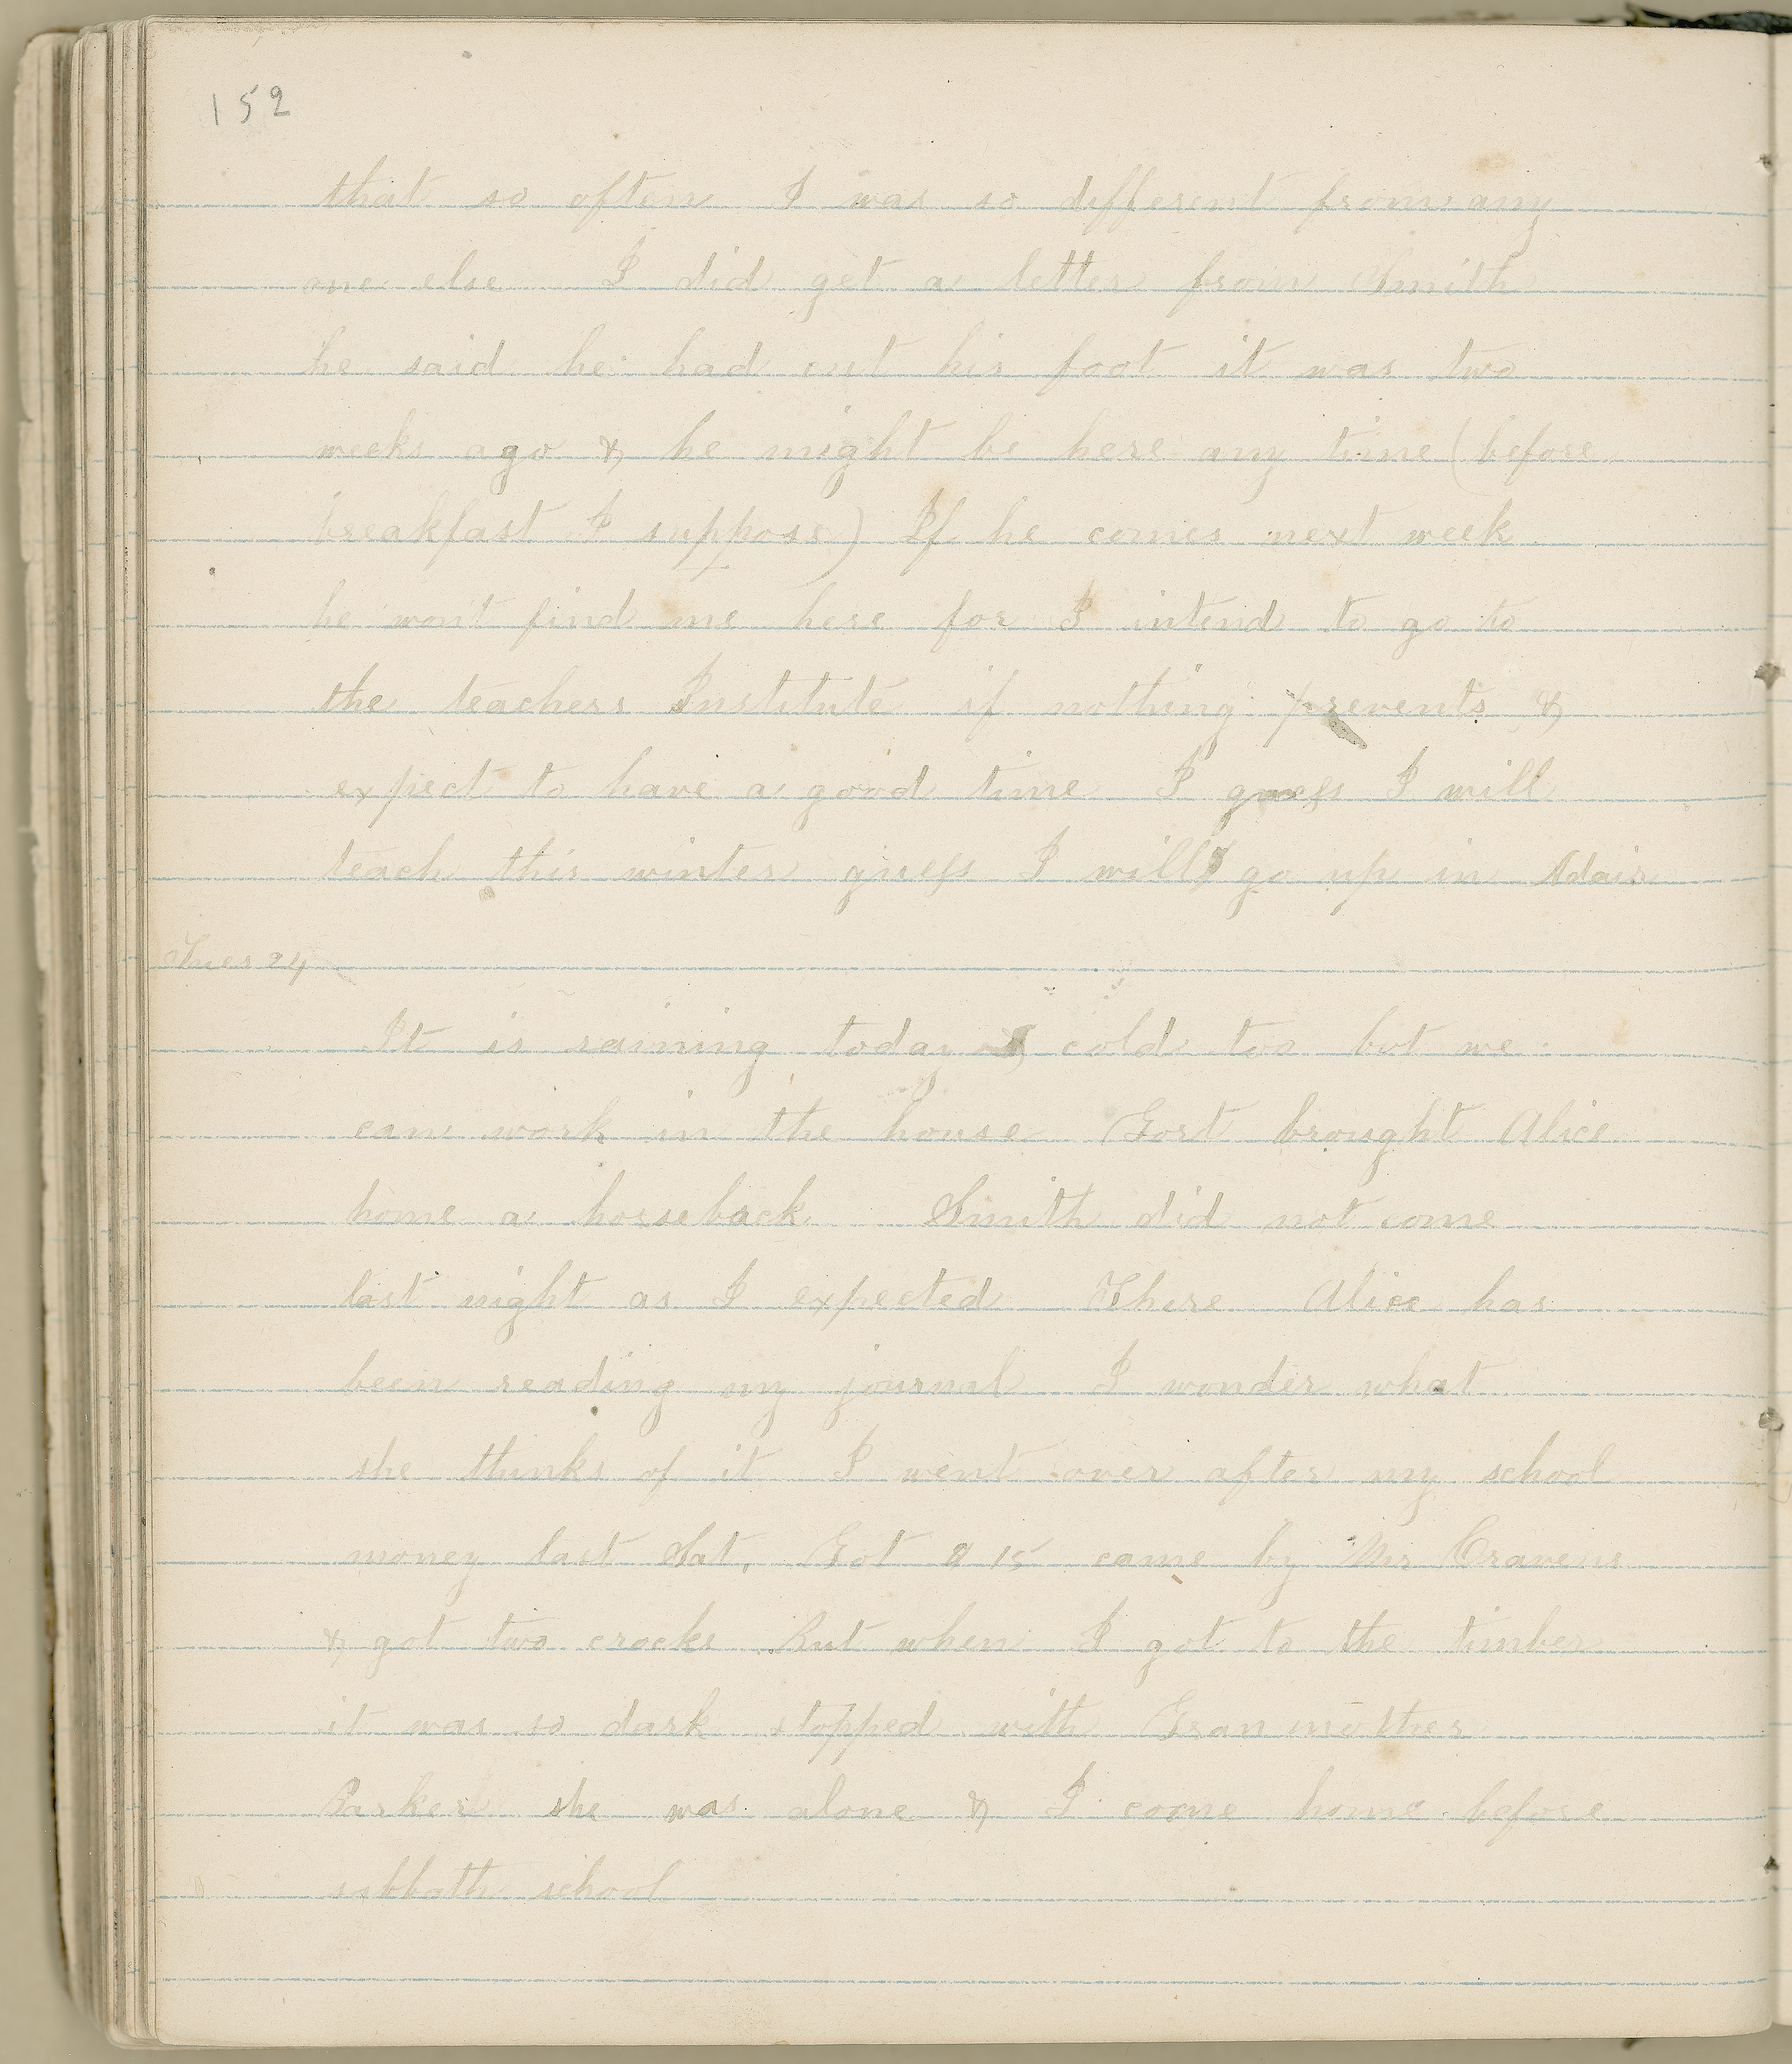 152
that so often I was so different from any
one else I did get a letter from Smith
he said he had cut his foot it was two
weeks ago & he might be here any time (before
breakfast I suppose) If he comes next week
he wont find me here for I intend to go to
the teachers Institute if nothing prevents &
expect to have a good time I guess I will
teach this winter guess I will go up in Adair
Tues 24
It is raining today & cold too but we
can work in the house Gort brought Alice
home a horseback Smith did not come
last night as I expected There Alice has
been reading my journal I wonder what
she thinks of it I went over after my school
money last Sat. Got $15 came by Mr Cravens
& got two crocks But when I got to the timber
it was so dark stopped with Gran mother
Parker she was alone & I come home before
sabbath school